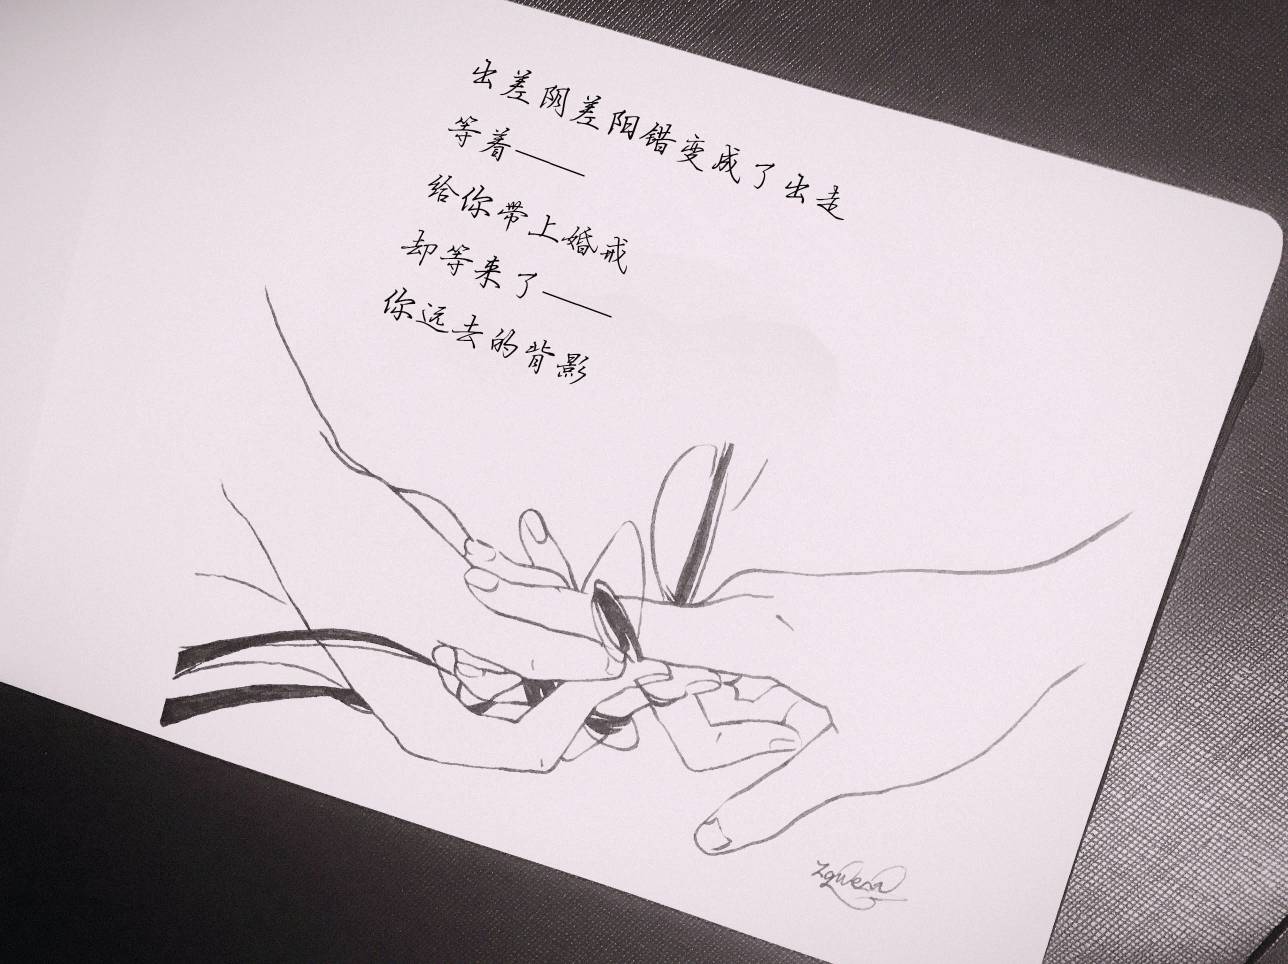 出差阴差阳错变成了出走
等着——
给你带上婚戒
却等来了——
你远去的背影